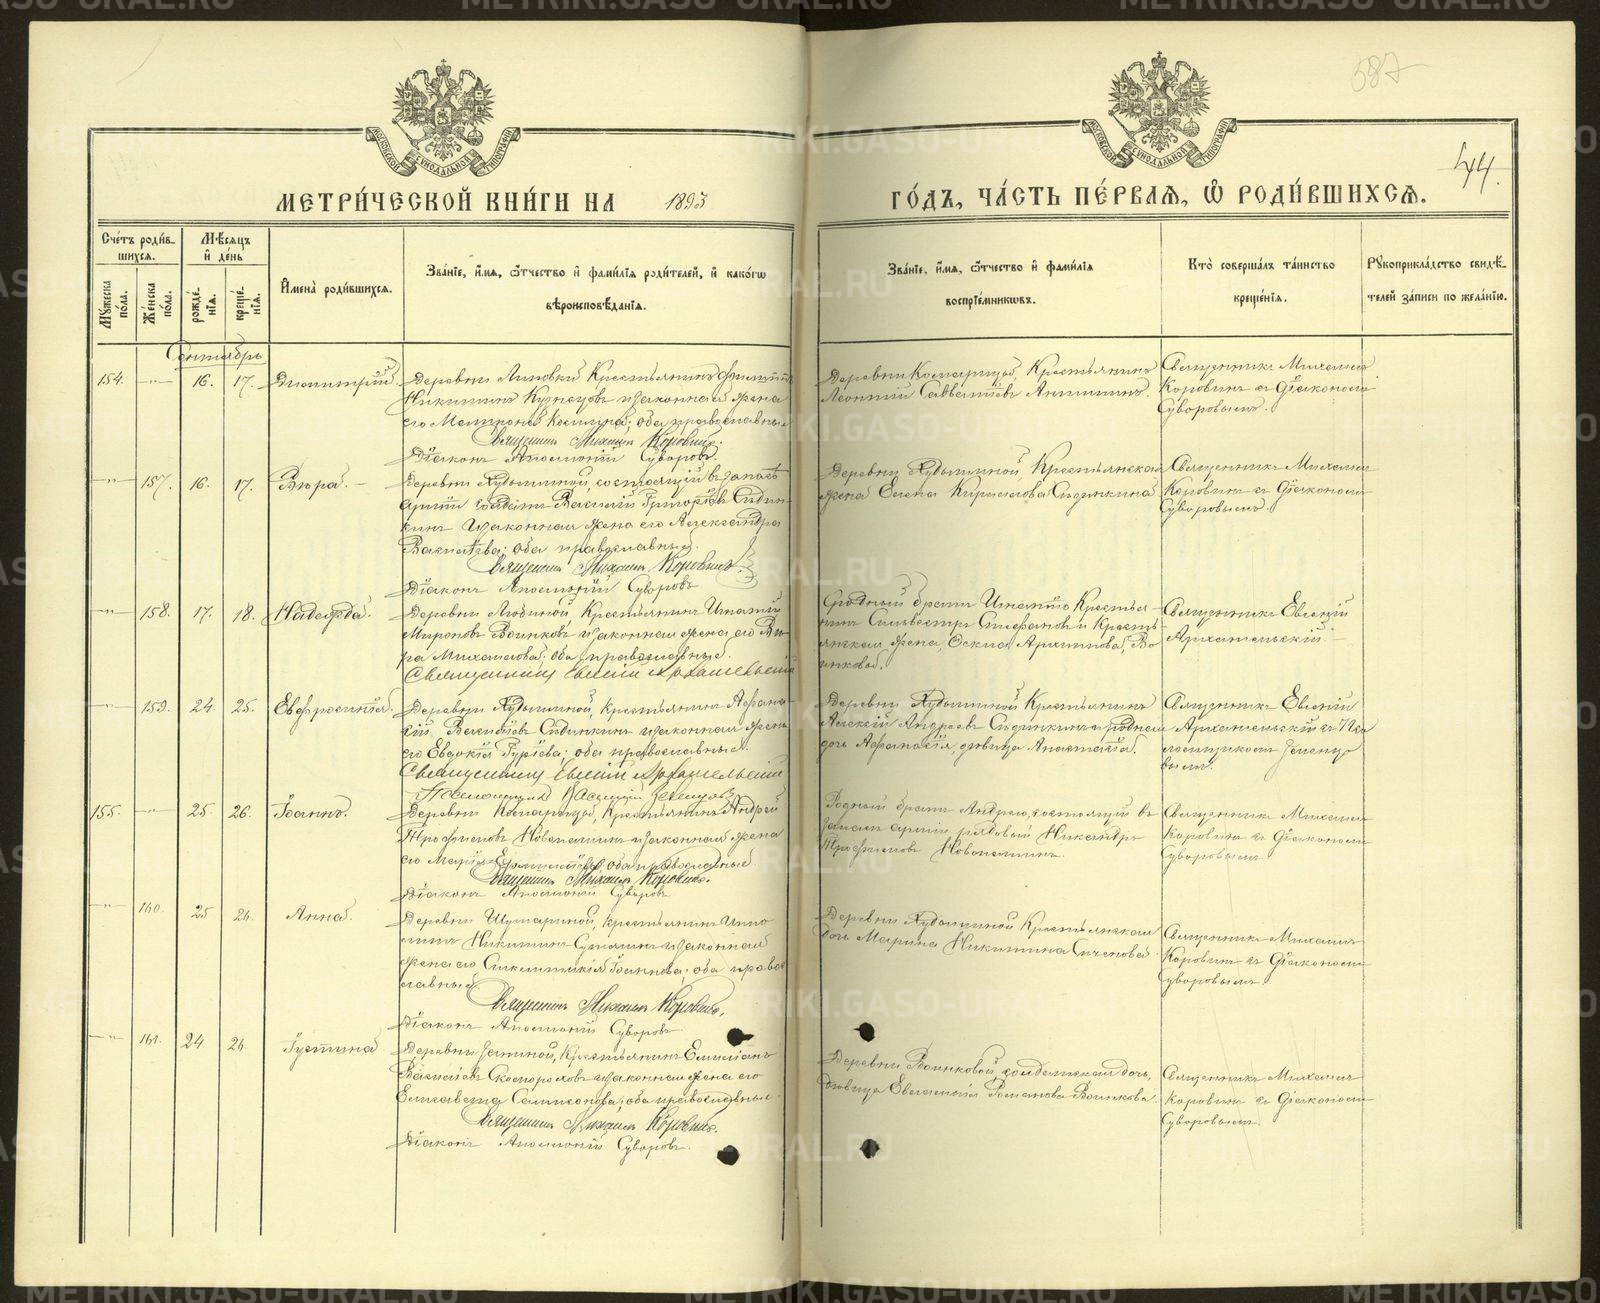 587
44.
МОСКОВСКОЙ СѴНОДАЛЬНОЙ ТИПОГРАФІИ
МОСКОВСКОЙ СѴНОДАЛЬНОЙ ТИПОГРАФІИ
МЕТРИ́ЧЕСКОЙ КНИ́ГИ НА 1893 ГО́ДЪ, ЧА́СТЬ ПЕ́РВАѦ, Ѡ РОДИ́ВШИХСѦ.
Сче́тъ роди́в-
шихся.
Мꙋ́жеска по́ла.
Же́нска по́ла.
Мѣ́сяцъ
и҆ де́нь
рожде́-
нія.
креще́-
нія.
И҆мена̀ роди́вшихся.
Зва́ніе, и҆́мя, ѻ҆́тчество и҆ фами́лія роди́телей, и҆ како́гѡ
вѣроисповѣ́данія.
Зва́ніе, и҆́мя, ѻ҆́тчество и҆ фами́лія
воспріе́мникѡвъ.
Кто̀ соверша́лъ та́инство
креще́нія.
Рꙋкоприкла́дство свидѣ́-
телей за́писи по жела́нію.
Сентябрь
154. —"— 16. 17. Димитрій.
Деревни Липовки Крестьянинъ Филиппъ
Никитинъ Кузнецовъ и законная жена
его Матрона Космина; оба православные
Священникъ Михаилъ Коровинъ.
Діаконъ Аполлоній Суворовъ.
Деревни Комарицой, Крестьянинъ
Леонтій Савватіевъ Аникинъ.
Священникъ Михаилъ
Коровинъ съ Діакономъ
Суворовымъ.
—"— 157. 16. 17. Вѣра. —
Деревни Худышиной, состоящій въ запасѣ
арміи солдатъ Василій Григорьевъ Сидин-
кинъ и законная жена его Александра
Васильева; оба православные.
Священникъ Михаилъ Коровинъ.
Діаконъ Аполлоній Суворовъ
Деревни Худышиной, Крестьянская
жена Елена Кирилова Сидинкина
Священникъ Михаилъ
Коровинъ съ Діакономъ
Суворовымъ.
—"— 158. 17. 18. Надежда.
Деревни Любиной Крестьянинъ Игнатій
Мироновъ Воинковъ и законная жена его Вѣ-
ра Михаилова; оба православные.
Священникъ Евгеній Архангельскій
Сродный братъ Игнатію Крестья-
нинъ Сильвестръ Стефановъ и Кресть-
янская жена, Архиппова, Во-
инковой.
Священникъ Евгеній
Архангельскій. —
—"— 159. 24. 25. Евфросинія.
Деревни Худышиной, крестьянинъ Афана-
сій Васильевъ Сидинкинъ и законная жена
его Евдокія Гуріева; оба православные.
Священникъ Евгеній Архангельскій
Псаломщикъ Василій
Деревни Худышиной Крестьянинъ
Алексій Андреевъ Сидинкинъ и родная
дочь Афанасія, дѣвица Анастасія.
Священникъ Евгеній
Архангельскій съ Пса-
ломщикомъ
155. —"— 25. 26. Іоаннъ.
Деревни Комарицой, Крестьянинъ Андрей
Трофимовъ Новопашинъ и законная жена
его Марія; оба православные.
Священникъ Михаилъ Коровинъ.
Діаконъ Аполлоній Суворовъ
Родный братъ Андрею, состоящій въ
запасѣ арміи рядовой Никандръ
Трофимовъ Новопашинъ.
Священникъ Михаилъ
Коровинъ съ Діакономъ
Суворовымъ
—"— 160. 25 26. Анна.
Деревни Шумариной, крестьянинъ
Никитинъ и законная
жена его Іоаннова; оба право-
славные
Священникъ Михаилъ Коровинъ.
Діаконъ Аполлоній Суворовъ
Деревни Худышиной Крестьянская
дочь Марина Никитина Сиченова.
Священникъ Михаилъ
Коровинъ съ Діакономъ
Суворовымъ.
—"— 161. 24. 26. Іустина
Деревни Заниной, Крестьянинъ Емиліанъ
Васильевъ Скоморохов и законная жена его
Елисавета Самсонова; оба православные
Священникъ Михаилъ Коровинъ.
Діаконъ Аполлоній Суворовъ.
Деревни Воинковой, солдатская дочь,
дѣвица Евгенія Романова Воинкова.
Священникъ Михаилъ
Коровинъ съ Діакономъ
Суворовымъ.
METRIKI.GASO-URAL.RU